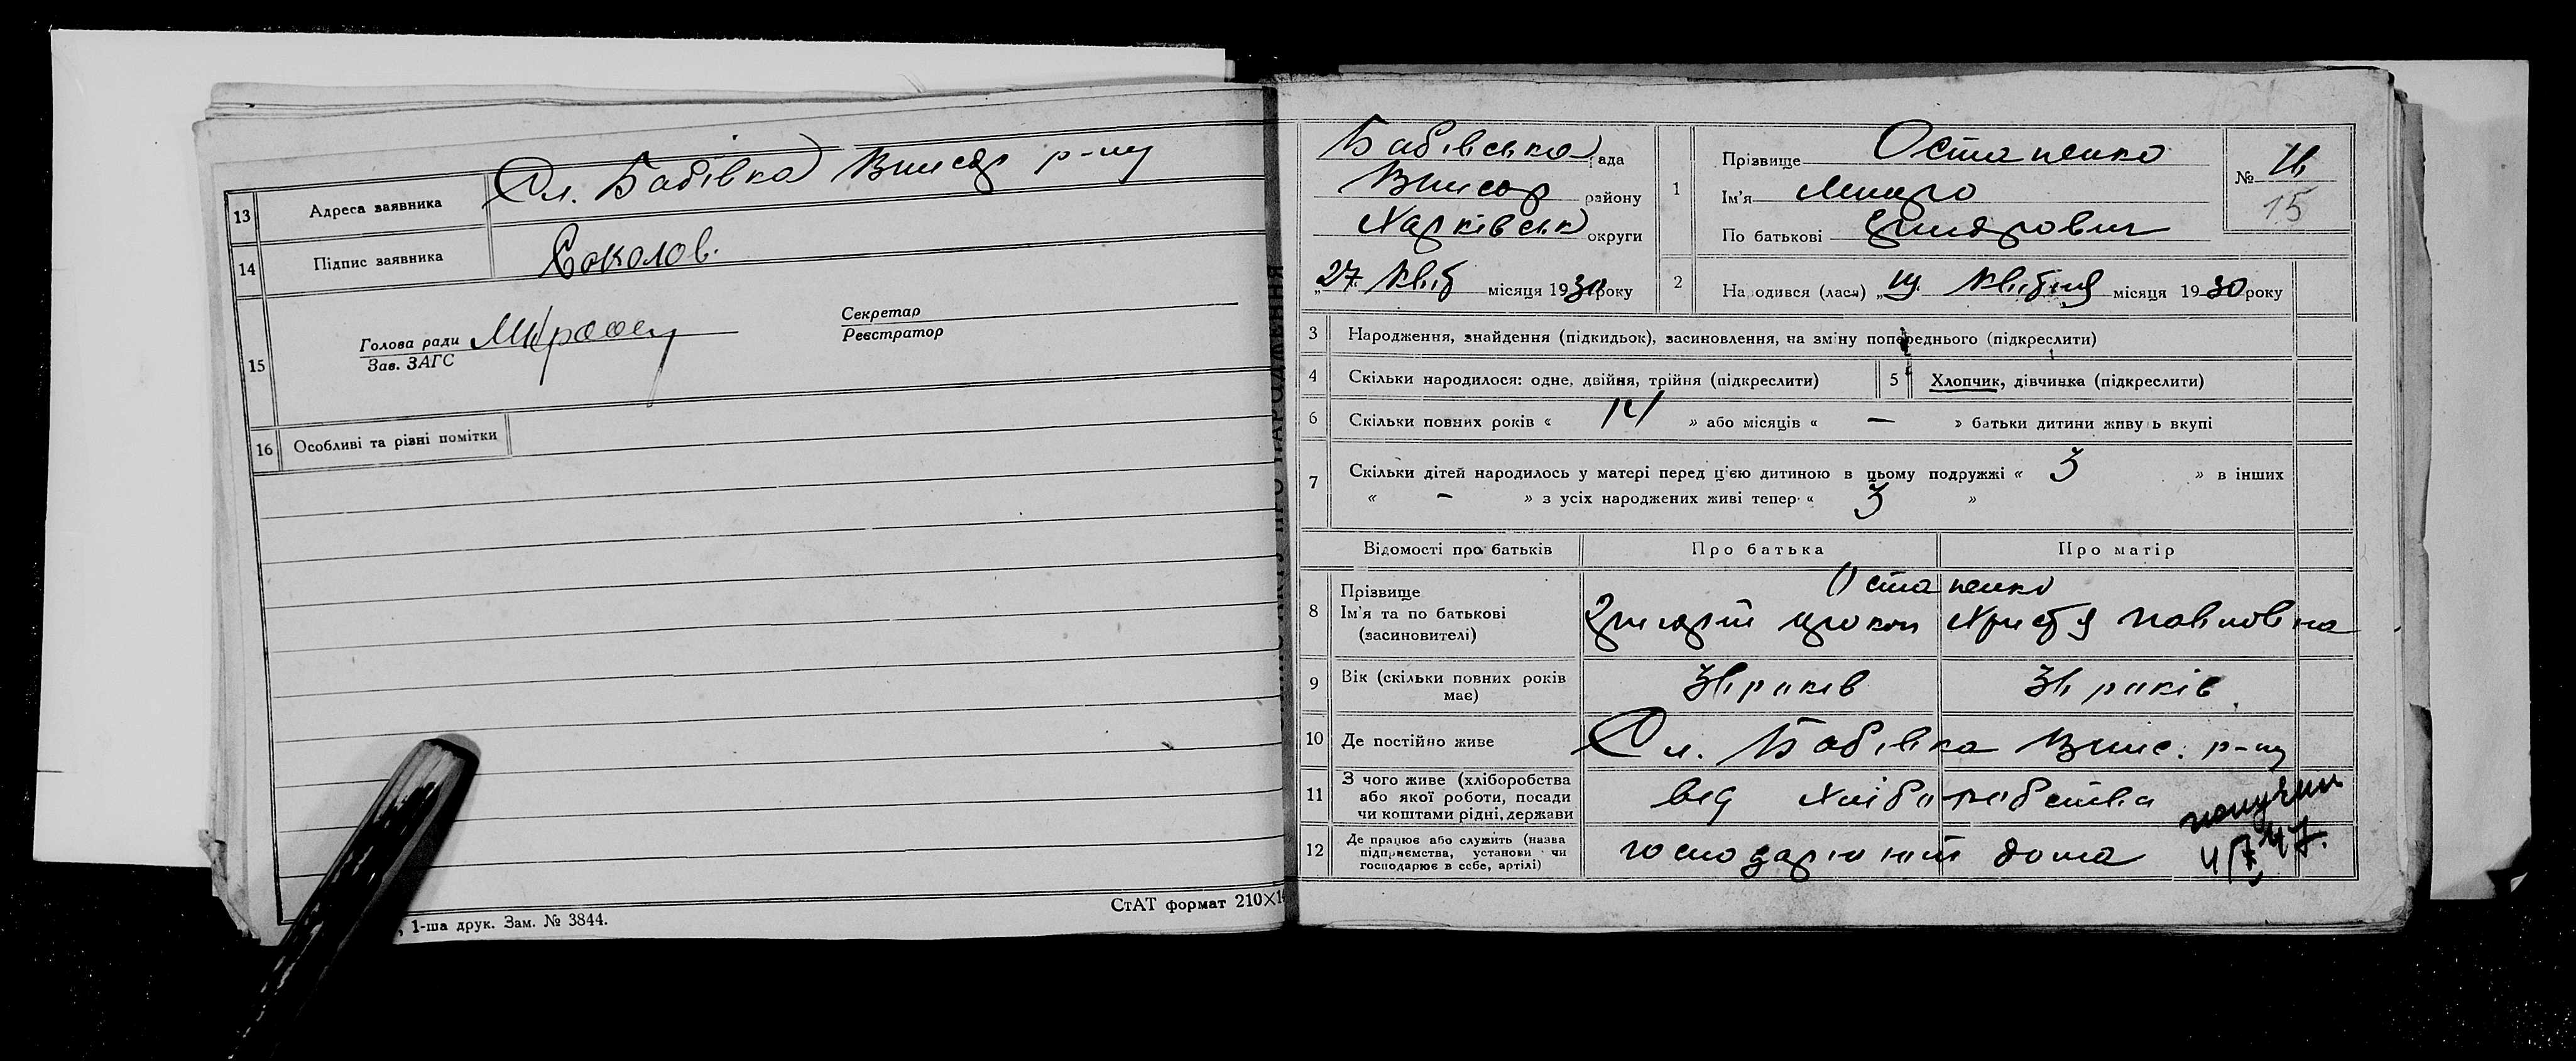 13 Адреса заявника Сл. Бабівка р-ну
14 Підпис заявника Соколов.
15 Голова ради
Зав. ЗАГС
Секретар
Реєстратор
16 Особливі та різні помітки
, 1-ша друк. Зам. № 3844.
СтАТ формат 210×14
Бабівська рада
району
Харківськ округи
„27. Квіт місяця 1930 року
1 Прізвище Остапенко
Ім'я
По батькові
№
15
2 Народився (лася) „ Квітня місяця 1930 року
3 Народження, знайдення (підкидьок), засиновлення, на зміну попереднього (підкреслити)
4 Скільки народилося: одне, двійня, трійня (підкреслити)
5 Хлопчик, дівчинка (підкреслити)
6 Скільки повних років « 14 » або місяців « — » батьки дитини живуть вкупі
7 Скільки дітей народилось у матері перед ц'єю дитиною в цьому подружжі « 3 » в інших
« – » з усіх народжених живі тепер « 3 »
Відомості про батьків Про батька Про матір
8 Прізвище
Ім'я та по батькові
(засиновителі)
Остапенко
Григорій Прокоп Христя Павловна
9 Вік (скільки повних років
має)
років років
10 Де постійно живе Сл. Бабівка р-ну
11 З чого живе (хліборобства
або якої роботи, посади
чи коштами рідні, держави
від Хліборобства
12 Де працює або служить (назва
підприємства, установи чи
господарює в себе, артілі)
господарюют дома